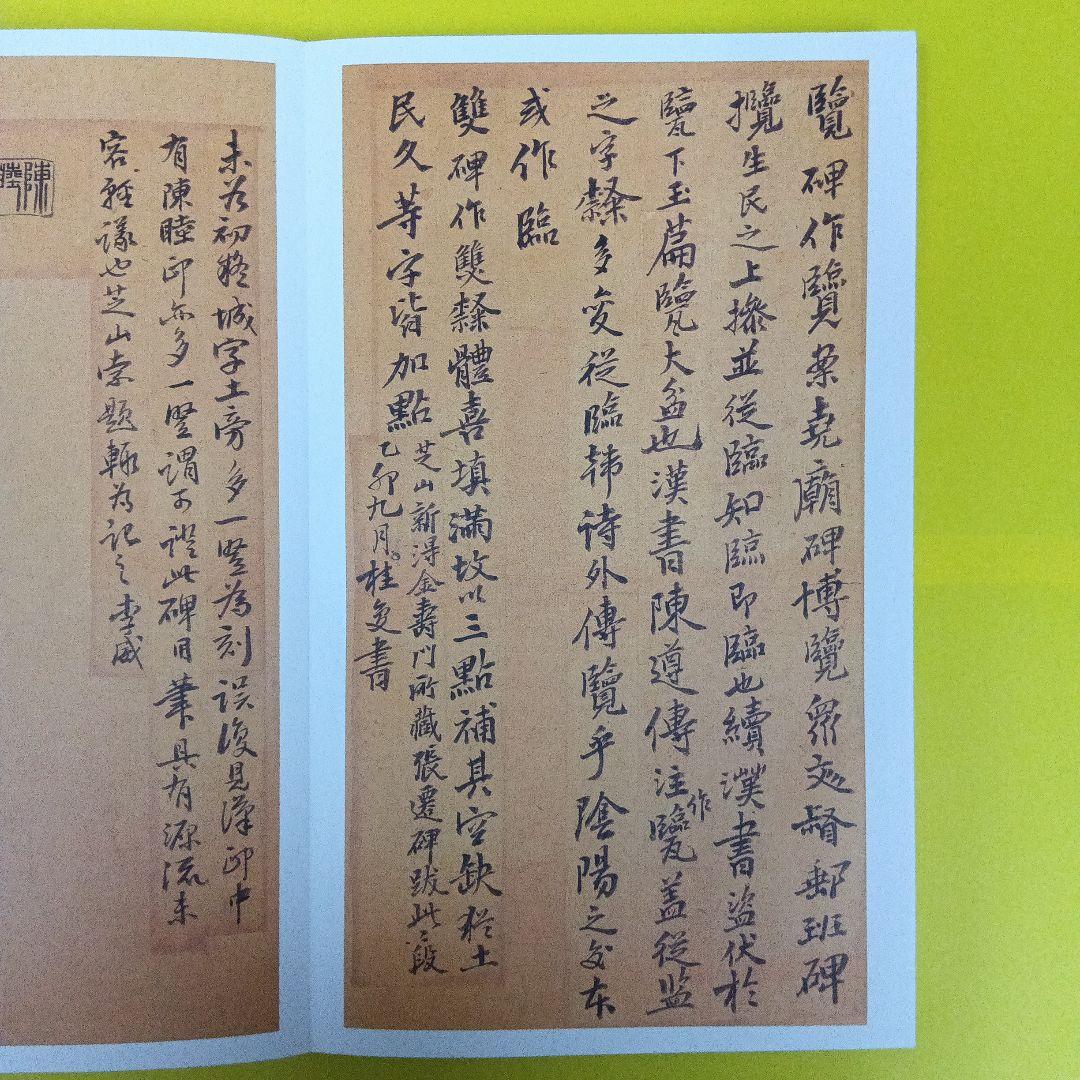 覽碑作覽案堯廟碑博覽羣文督郵班碑
攬生民之上操並從臨知臨即臨也續漢書盜伏於
甖下玉篇甖大盆也漢書陳遵傳注甖作蓋從監
之字隸多變從臨韩诗外傳覽乎陰陽之交本
或作臨
雙碑作雙隸體喜填滿故以三點補其空缺猶土
民久等字皆加點
芝山新得金壽門所藏張遷碑跋此二段
乙卯九月桂复書
未谷初疑城字土旁多一竪為刻誤後見漢印中
有陳睦印亦多一竪謂可證此碑用筆具有源流未
容輕議也芝山索題輒為記之李威
陳睦